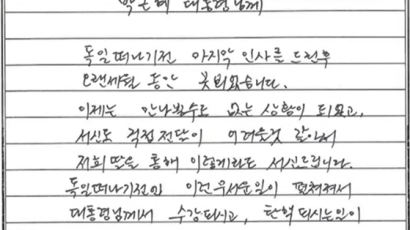 박근혜 대통령님께
독일떠나기전 마지막 인사를 드린후
오랜세월 동안 못뵈었습니다.
이제는 만나뵐수도 없는 상황이 되었고,
서신도 직접전달이 어려울것 같아서
저희 딸을 통해 이렇게라도 서신드립니다.
독일떠나기전에 이런무서운일이 펼쳐져서
대통령님께서 수감되시고, 탄핵되시는일이